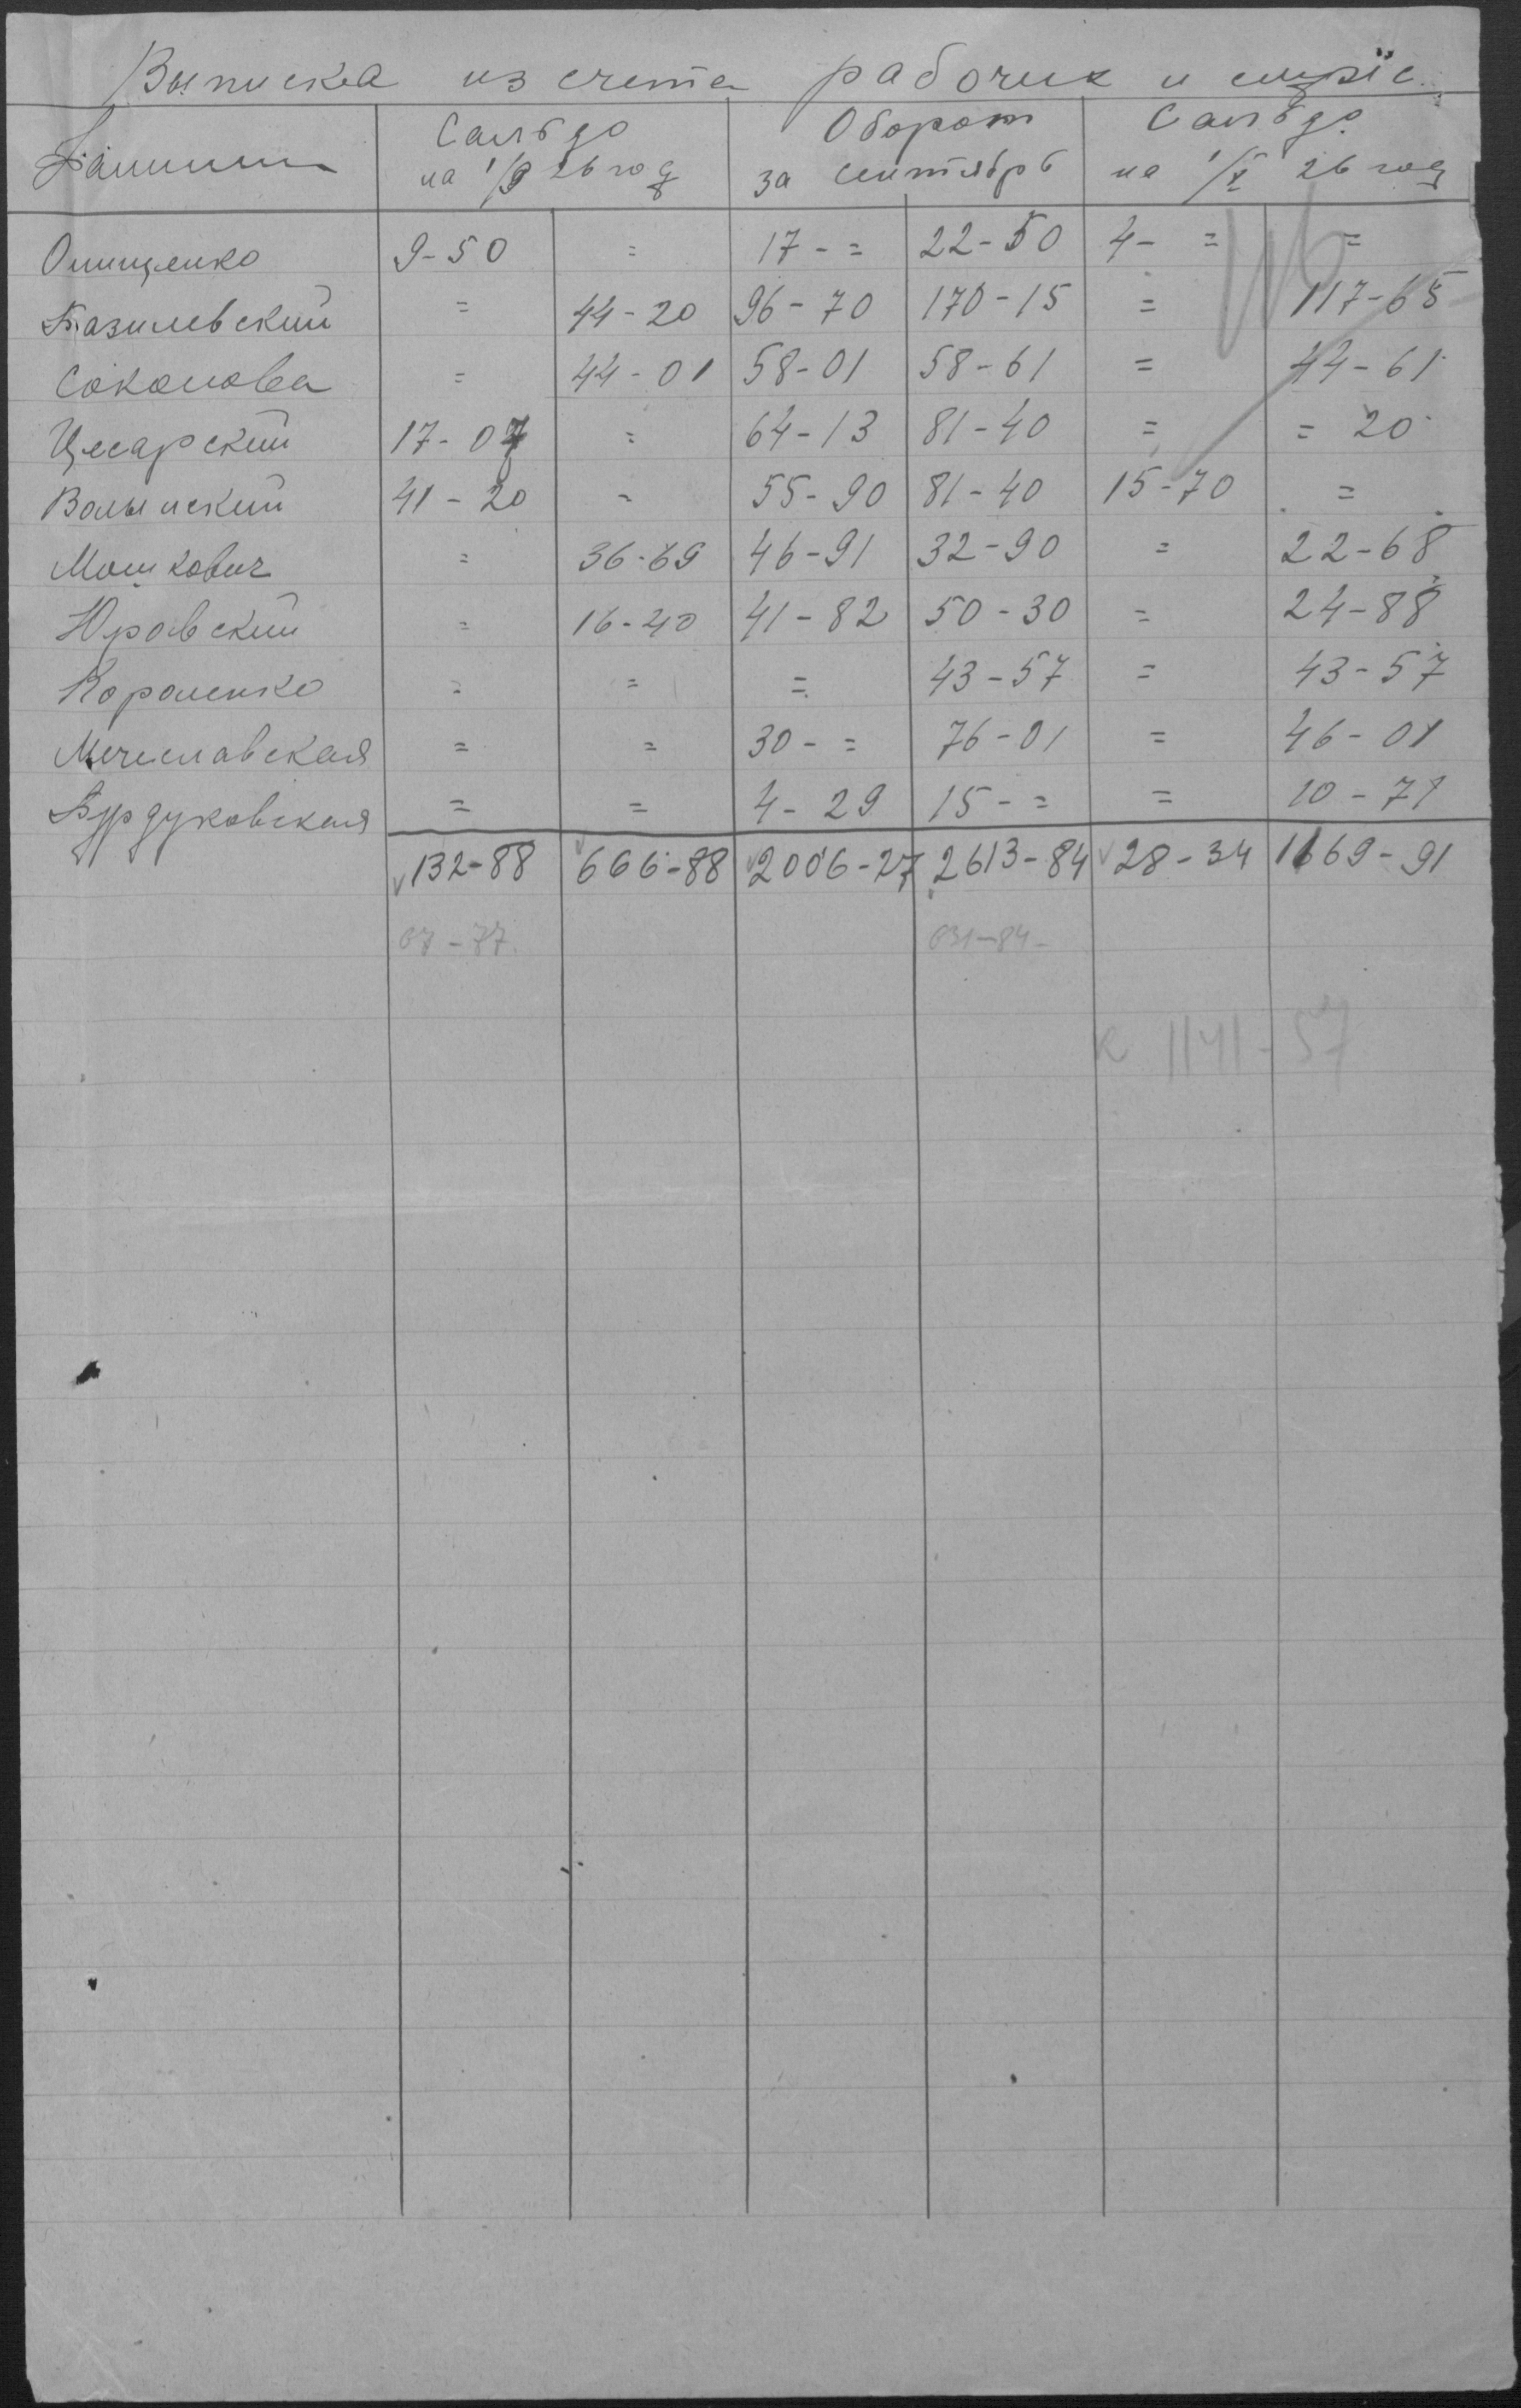 Выписка из счета рабочих и служ.
Фамилии Сальдо на 1/9 26 год Оборот за сентябрь Сальдо на 1/X 26 год
Онищенко 9-50 = 17-= 22-50 4-= =
Базилевский = 44-20 96-70 170-15 = 117-65
Соколова = 44-01 58-01 58-61 = 44-61
Цесарский 17-07 = 64-13 81-40 = = 20
Волынский 41-20 = 55-90 81-40 15-70 =
Мошкович = 36-69 46-91 32-90 = 22-68
Юровский = 16-40 41-82 50-30 = 24-88
Короленко = = = 43-57 = 43-57
Мечиславская = = 30-= 76-01 = 46-01
Бурдуковская = = 4-29 15-= = 10-71
132-88 666-88 2006-27 2613-84 28-34 1169-91
07-77. 031-84-
К 1141-57